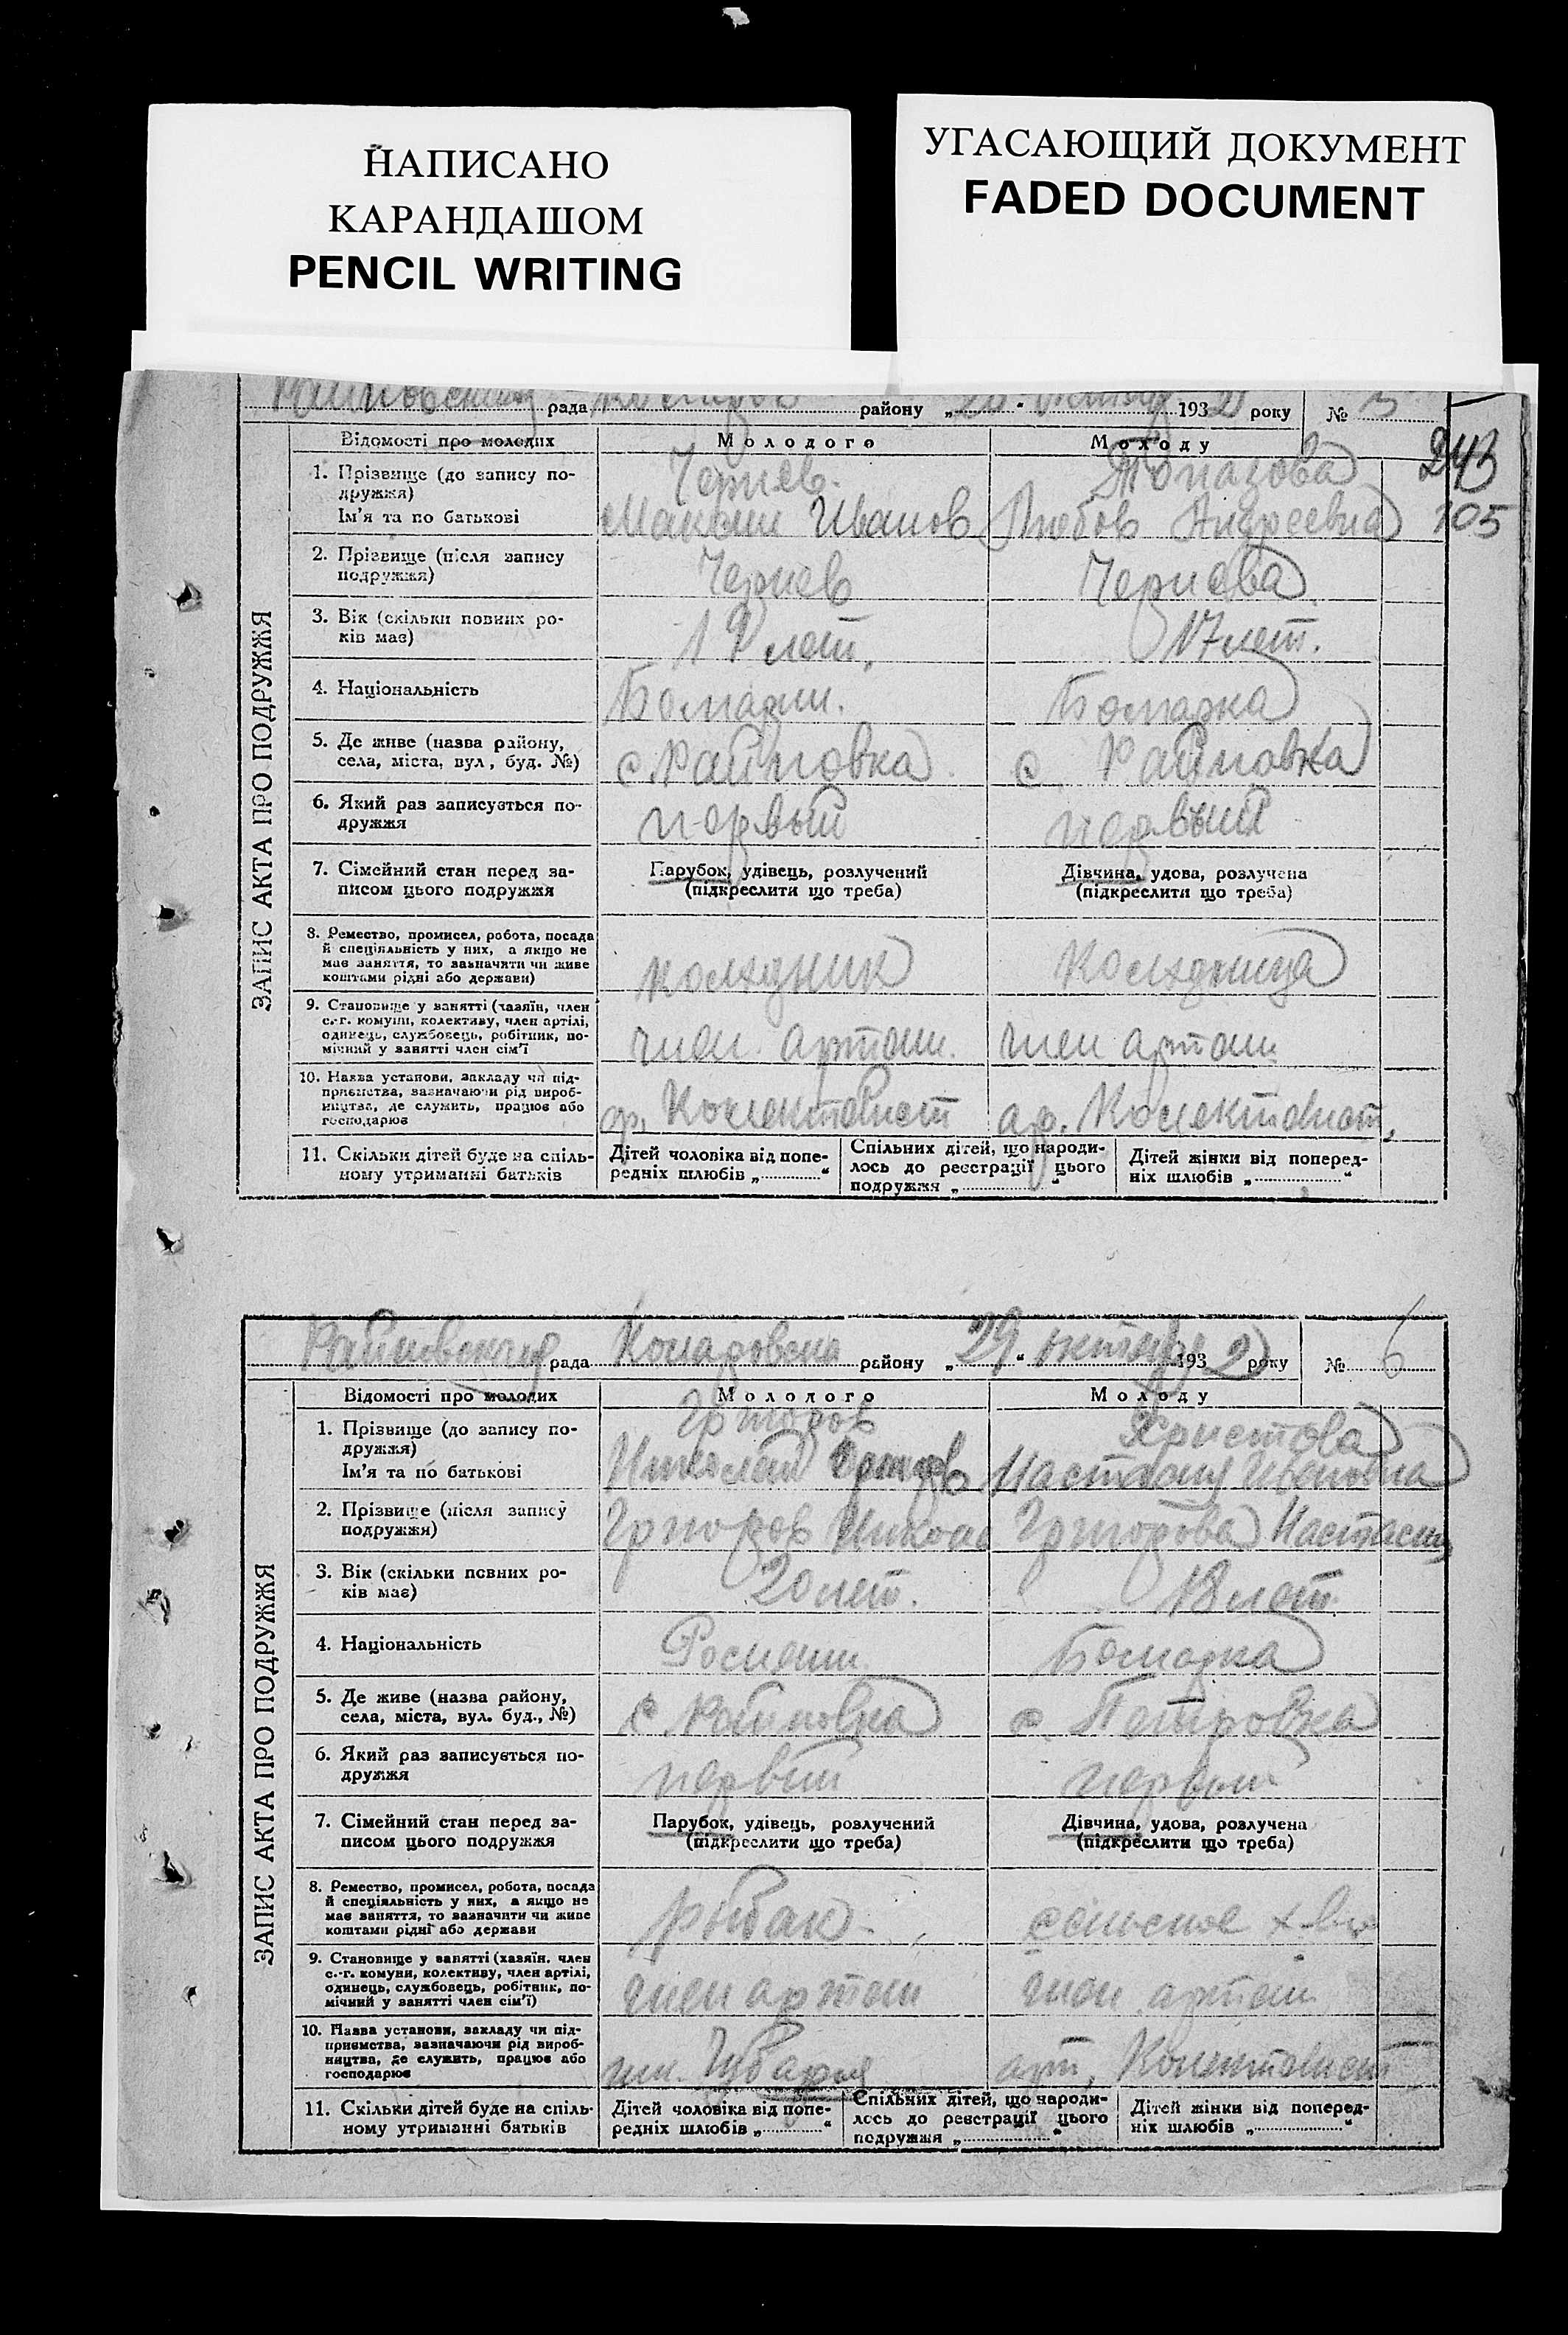 НАПИСАНО
КАРАНДАШОМ
PENCIL WRITING
УГАСАЮЩИЙ ДОКУМЕНТ
FADED DOCUMENT
рада району 193 2 року №
243
105
ЗАПИС АКТА ПРО ПОДРУЖЖЯ
Відомості про молодих Молодого Молоду
1. Прізвище (до запису по-
дружжя)
Чернев.
Ім'я та по батькові
Максим Иванов Любов Андреевна
2. Прізвище (після запису
подружжя)
Чернев Чернева
3. Вік (скільки повних ро-
ків має)
лет. 17 лет.
4. Національність
Болгарин. Болгарка
5. Де живе (назва району,
села, міста, вул., буд. №)
с. Райновка с. Райновка
6. Який раз записується по-
дружжя
первый первый
7. Сімейний стан перед за-
писом цього подружжя
Парубок, удівець, розлучений
(підкреслити що треба)
Дівчина, удова, розлучена
(підкреслити що треба)
8. Ремество, промисел, робота, посада
й спеціяльність у них, а якщо не
має заняття, то зазначити чи живе
коштами рідні або держави)
колхдник колхдница
9. Становище у занятті (хазяїн, член
с.-г. комуни, колективу, член артілі,
одинець, службовець, робітник, по-
мічний у занятті член сім'ї
член артели. член артели
10. Назва установи, закладу чи під-
приємства, зазначаючи рід вироб-
ництва, де служить, працює або
господарює
Колективист ар. Колективист
11. Скільки дітей буде на спіль-
ному утриманні батьків
Дітей чоловіка від попе-
редніх шлюбів „ “
Спільних дітей, що народи-
лось до реєстрації цього
подружжя „ “
Дітей жінки від поперед-
ніх шлюбів „ “
Райновская рада Коларовска району „29“ октября 1932 року № 6
ЗАПИС АКТА ПРО ПОДРУЖЖЯ
Відомості про молодих Молодого Молоду
1. Прізвище (до запису по-
дружжя)
Христова
Ім'я та по батькові
Николай Ивановна
2. Прізвище (після запису
подружжя)
Настасия
3. Вік (скільки повних ро-
ків має)
20 лет. 18 лет.
4. Національність
Болгарка
5. Де живе (назва району,
села, міста, вул. буд., №)
с. Райновка с. Петровка
6. Який раз записується по-
дружжя
первый первый
7. Сімейний стан перед за-
писом цього подружжя
Парубок, удівець, розлучений
(підкреслити що треба)
Дівчина, удова, розлучена
(підкреслити що треба)
8. Ремество, промисел, робота, посада
й спеціяльність у них, а якщо не
має заняття, то зазначити чи живе
коштами рідні або держави
рыбак сельское х-во
9. Становище у занятті (хазяїн, член
с.-г. комуни, колективу, член артілі,
одинець, службовець, робітник, по-
мічний у занятті член сім'ї)
член артели член артели
10. Назва установи, закладу чи під-
приємства, зазначаючи рід вироб-
ництва, де служить, працює або
господарює
арт. Колективист
11. Скільки дітей буде на спіль-
ному утриманні батьків
Дітей чоловіка від попе-
редніх шлюбів „ “
Спільних дітей, що народи-
лось до реєстрації цього
подружжя „ “
Дітей жінки від поперед-
ніх шлюбів „ “